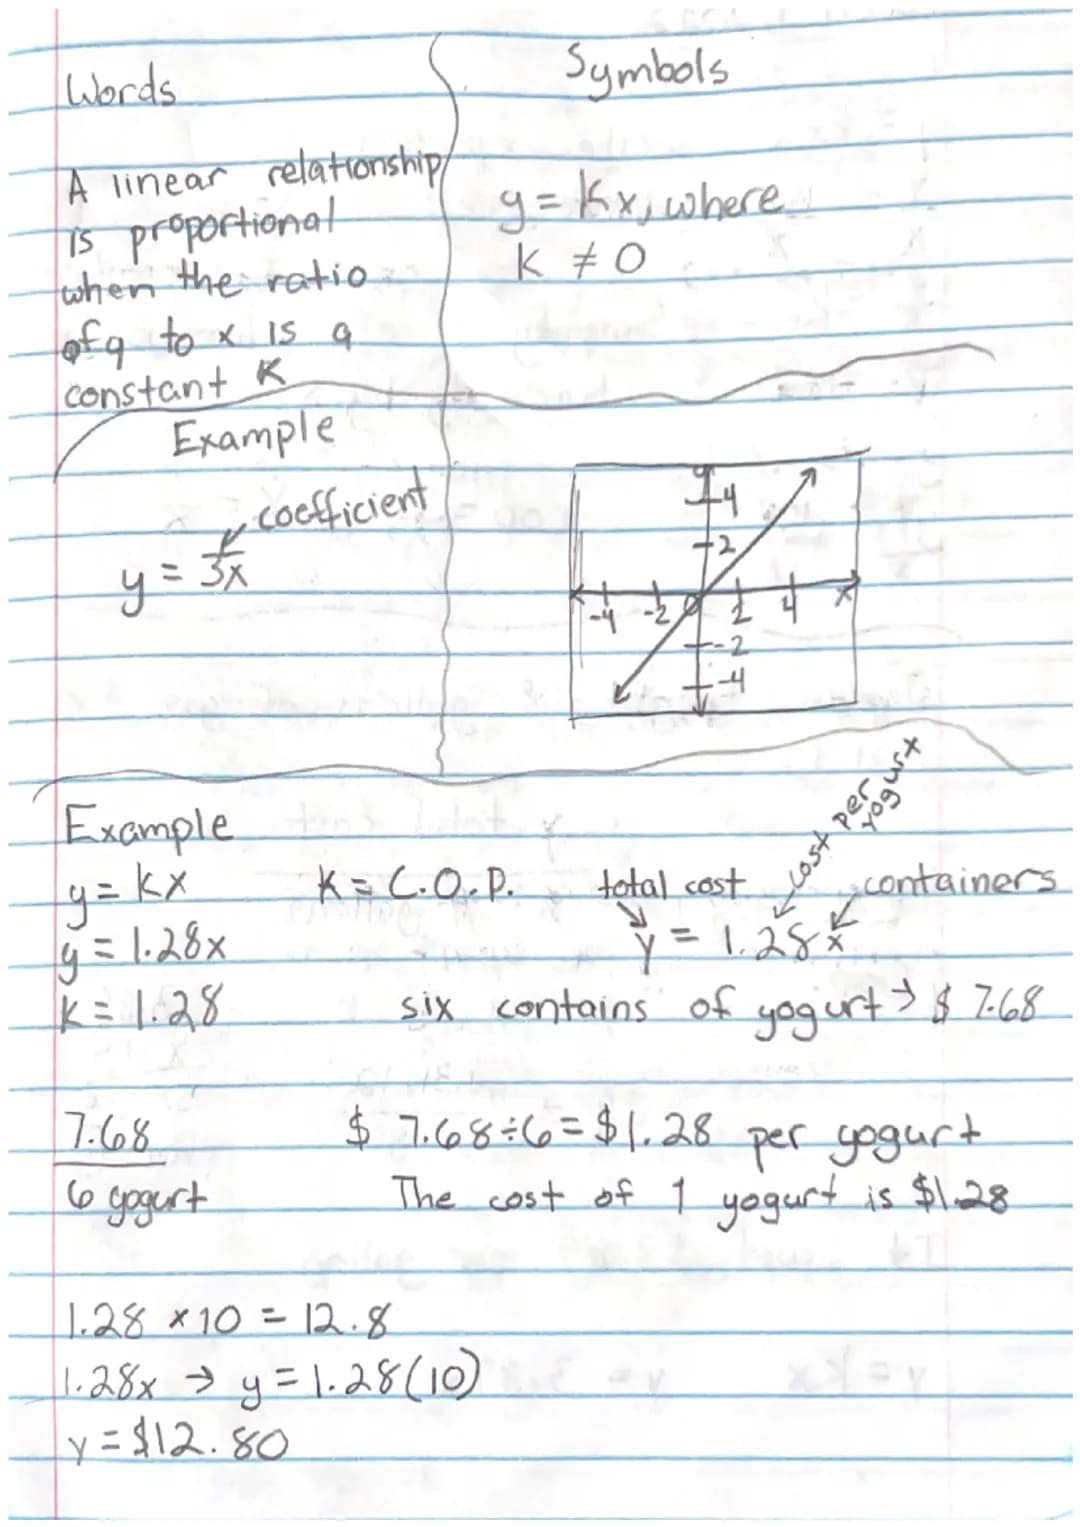 Words
Symbols
A linear relationship
is proportional
when the ratio
of y to x is a
constant K
y = Kx, where
K ≠ 0
Example
coefficient
y = 3x
y
4
2
-4 -2 0 2 4 x
-2
-4
Example
y = kx
y = 1.28x
K = 1.28
K = C.O.P.
total cost
cost per
yogurt
containers
y = 1.28x
six contains of yogurt → $ 7.68
7.68
6 yogurt
$ 7.68÷6 = $1.28 per yogurt
The cost of 1 yogurt is $1.28
1.28 × 10 = 12.8
1.28x → y = 1.28(10)
y = $12.80